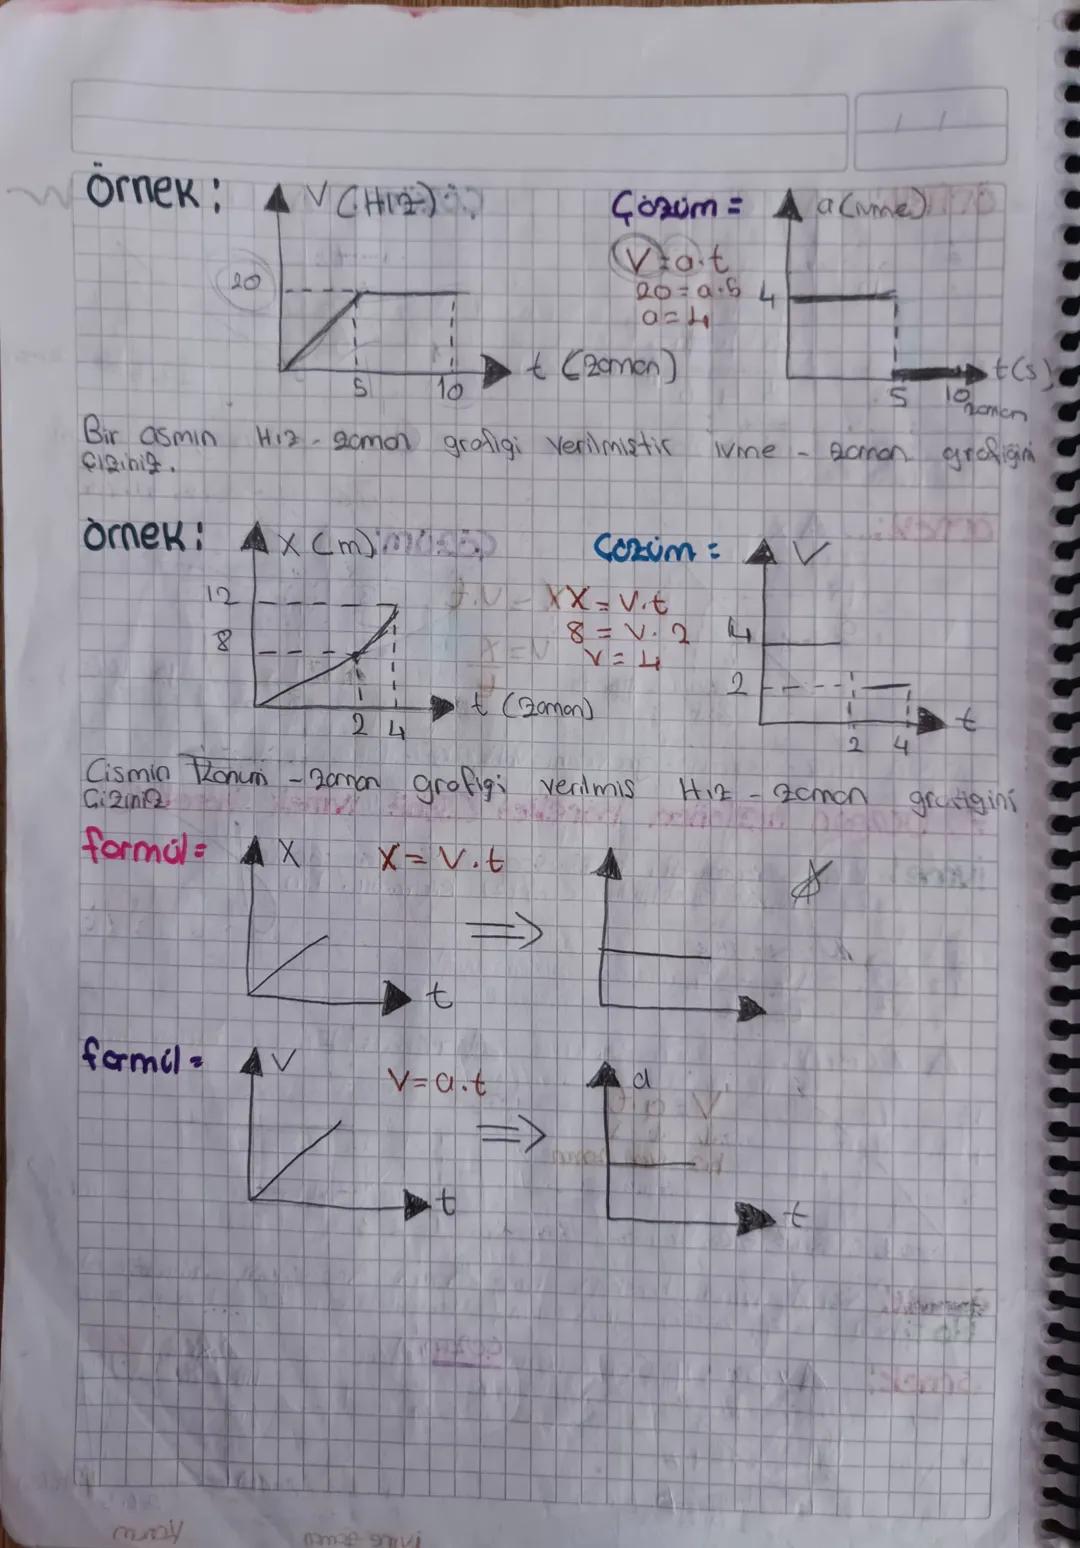 Örnek:
V (Hız)
20
5
10
t (zaman)
Çözüm =
V = a.t
20 = a.5
a = 4
a (ivme)
4
5
10
t(s)
zaman
Bir cismin Hız - zaman grafigi verilmistir ivme - zaman grafigini
çiziniz.
örnek:
X (m)
12
8
2
4
t (zaman)
Cozüm =
X = V.t
8 = V. 2
V = 4
V
4
2
2
4
t
Cismin Konum - zaman grafigi verilmis Hız - zaman grafigini
Ciziniz
formül =
X
t
X = V.t
⇒
formül =
V
t
V = a.t
⇒
a
t